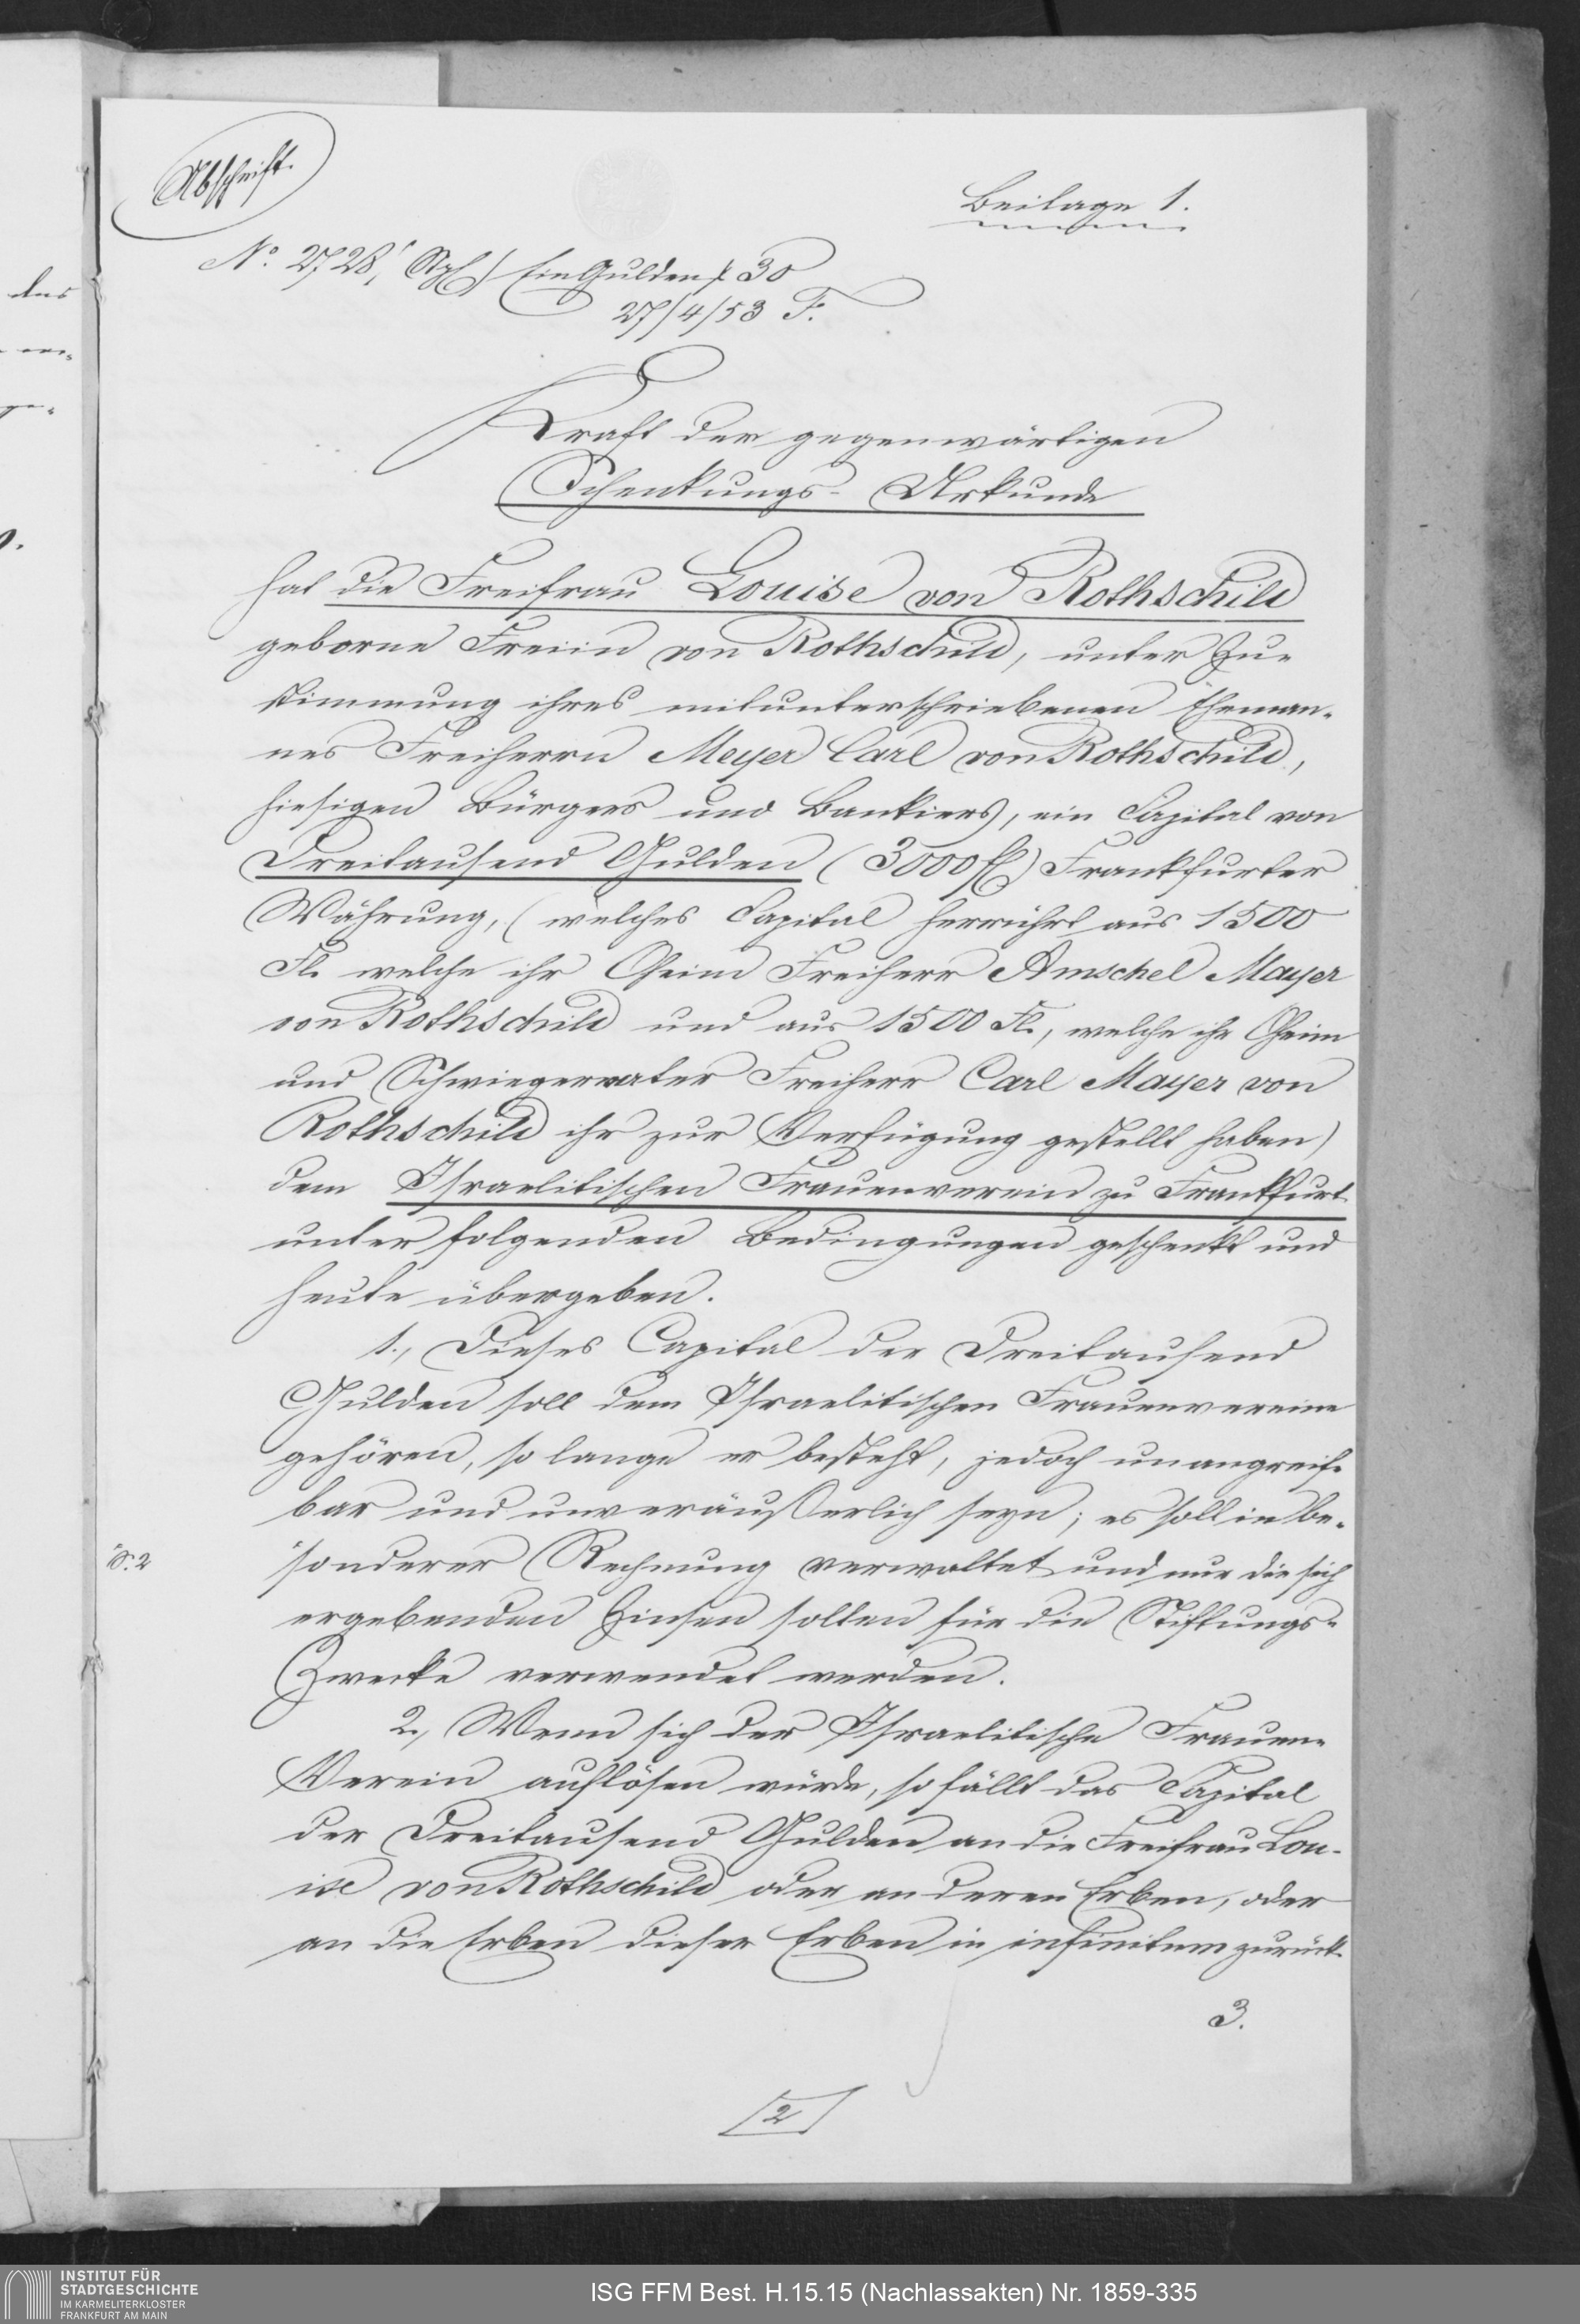 Abschrift.
Beilage 1.
No. 2728, Stpl. Ein Gulden x 30
27/4/53 F.
Kraft der gegenwärtigen
Schenkungs-Urkunde
hat die Freifrau Louise von Rothschild
geborne Freiin von Rothschild, unter Zu-
stimmung ihres mitunterschriebenen Eheman-
nes Freiherrn Meyer Carl von Rothschild,
hiesigen Bürgers und Bankiers, ein Capital von
Dreitausend Gulden (3000 fl) Frankfurter
Währung, (welches Capital herrührt aus 1500
Fl. welche ihr Oheim Freiherr Amschel Mayer
von Rothschild und aus 1500 Fl., welche ihr Oheim
und Schwiegervater Freiherr Carl Mayer von
Rothschild ihr zur Verfügung gestellt haben)
dem Israelitischen Frauenverein zu Frankfurt
unter folgenden Bedingungen geschenkt und
heute übergeben.
1., Dieses Capital der Dreitausend
Gulden soll dem Israelitischen Frauenvereine
gehören, so lange er besteht, jedoch unangreif-
bar und unveräußerlich seyn; es soll in be-
S. 2
sonderer Rechnung verwaltet und nur die sich
ergebenden Zinsen sollen für die Stiftungs-
Zwecke verwendet werden.
2., Wenn sich der Israelitische Frauen-
Verein auflösen würde, so fällt das Capital
der Dreitausend Gulden an die Freifrau Lou-
ise von Rothschild oder an deren Erben, oder
an die Erben dieser Erben in infinitum zurück.
3.
2
das
INSTITUT FÜR
STADTGESCHICHTE
IM KARMELITERKLOSTER
FRANKFURT AM MAIN
ISG FFM Best. H.15.15 (Nachlassakten) Nr. 1859-335